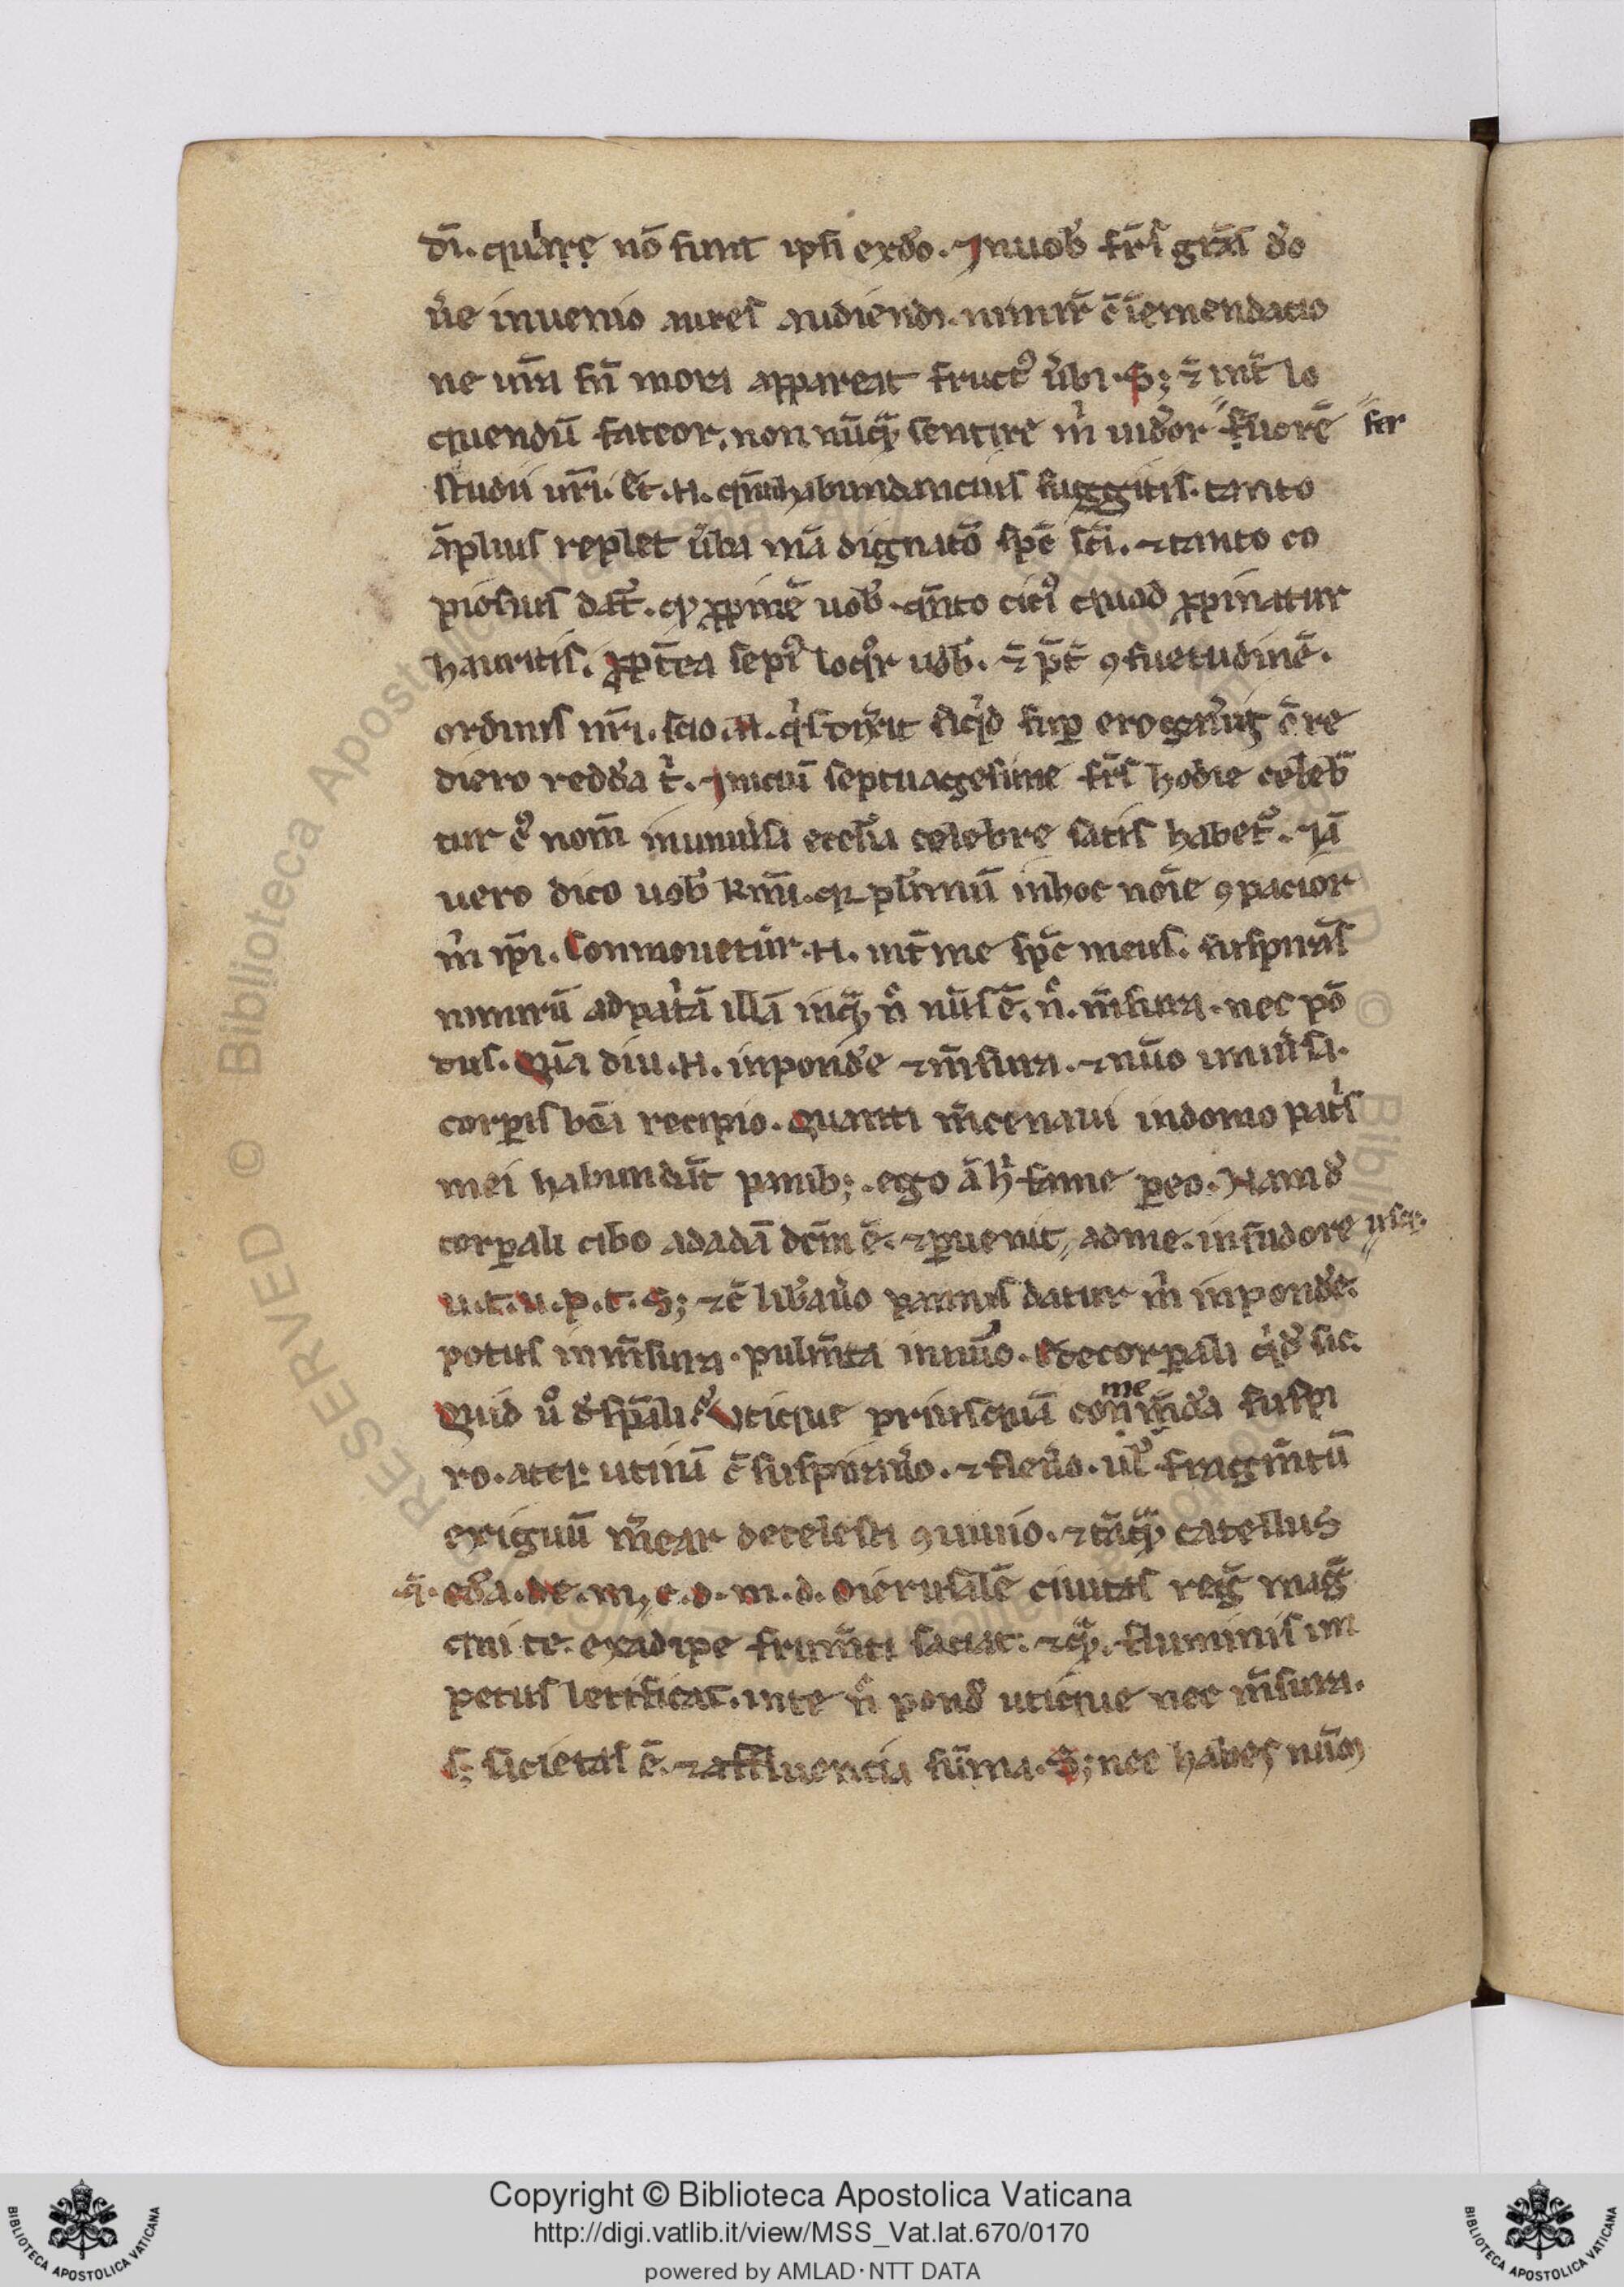 dn̄i. quare nō sunt ipsi ex d̓o. In uob̓ frs̄ grā̄s d̓o
u̓e inuenio aures audiendi. nimir̄ c̄ ī emendatio
ne ur̄a sn̄ mora appareat fruct᷒ u̓bi. S; ⁊̄ int̄ lo
quendū fateor, non nūq̄ꝫ sentire m̓ uideor fuorē fer
studii ur̄i. Et .n. qn̄to habundancius suggitis. tanto
āplius replet u̓ba mā dignatō spc̄ sc̄i. ⁊ tanto co
piosius dat̄. qͥ ꝓpinē uob̓. qn̄to citi᷒ quod ꝓpinatur
hauritis. ꝓpt̄ea sepi᷒ loq᷒r uob̓. ⁊̄ p̄t̄ ꝯsuetudinē.
ordinis nr̄i. scio .n. qͥs dixit siqͥd suꝑ erogau̓itꝭ c̄ re
diero reddā t̓. Inicium septuagesime frs̄ hodie celeb̄
tur c᷒ nom̄ in uniu̓sa ecclīa celebre satis habet᷒. Iā
uero dico uob̓ kmī. qꝛ plimū in hoc nōie ꝯpacior
m̓ ip̄i. Commouetur .n. int̄ me spc̄ meus. suspirās
nimirū ad patͥā illā inq̄ꝫ n̊ nūs ē. n̊. m̄sura. nec pō
dus. Quīa diu .n. in pond̓e ⁊ m̄sura. ⁊ nūo uniu̓sa.
corꝑis bōa recipio. Quanti m̄cenaui in domo patͥs
mei habundāt panib;. ego ā h̓ fame ꝑeo. Nam d̓
corꝑali cibo ad adā dcm̄ ē. ⁊ ꝑuenit ad me. in sudore usq;.
u. t. u. p. t. S; ⁊ c̄ lib̓au̓o panis datur m̓ in pond̓e.
potus in m̄sura. pulm̄ta in nūo. Et de corꝑali qͥd̓ sic.
Quid ů d̓ spāli? Utique priusquā com me m̄dā suspi
ro. atqꝫ utinā c̄ suspirau̓o. ⁊ fleu̓o. ul̓ fragm̄tū
exiguū m̓ear de celesti ꝯuiuio. ⁊ tāq̄ꝫ catellus
.q̄. ed̓a. de. m, c. d. m. d. O ierusalē ciuitas reḡ maḡ
qui te. ex adipe frum̄ti saciat. ⁊ q̄ꝫ. fluminis im
petus letificat. in te n̊ pond̓ utique nec m̄sura.
s; sacietas ē. ⁊ affluencia sūma. S; nec habes nūꝫ
Copyright © Biblioteca Apostolica Vaticana
http://digi.vatlib.it/view/MSS_Vat.lat.670/0170
powered by AMLAD·NTT DATA